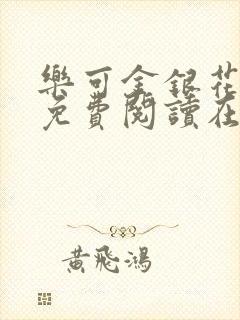 樂可金銀花
免費閱讀在
黃飛鴻